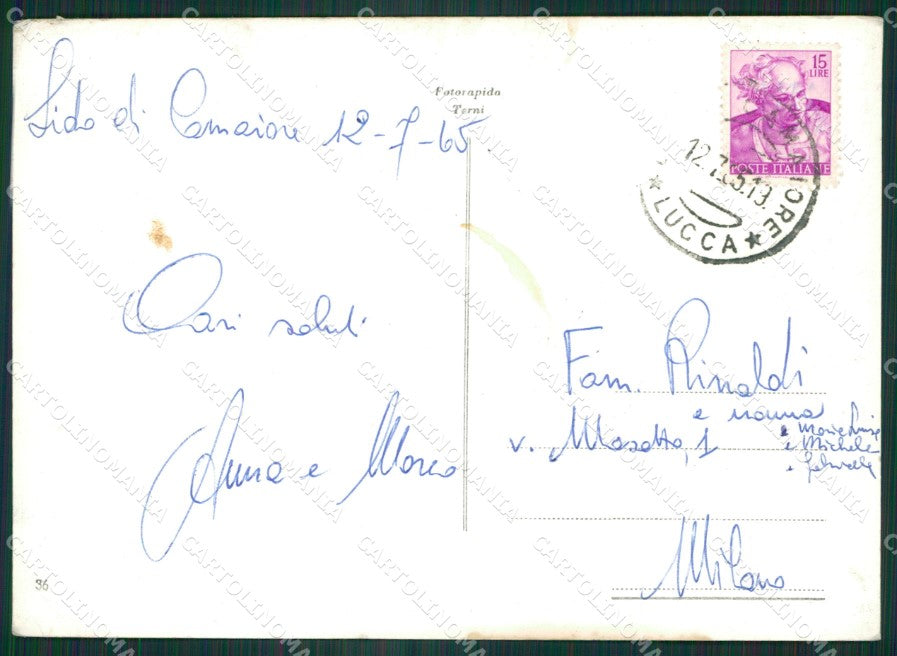 Lido di Camaiore 12-7-65
Cari saluti
Anna e Marco
36
Fotorapida
Terni
15
LIRE
POSTE ITALIANE
12.7.65.19
CAMAIORE
★ LUCCA ★
Fam. Rinaldi
e nonna
e Michele
v. Masotto, 1
Milano
CARTOLINOMANIA